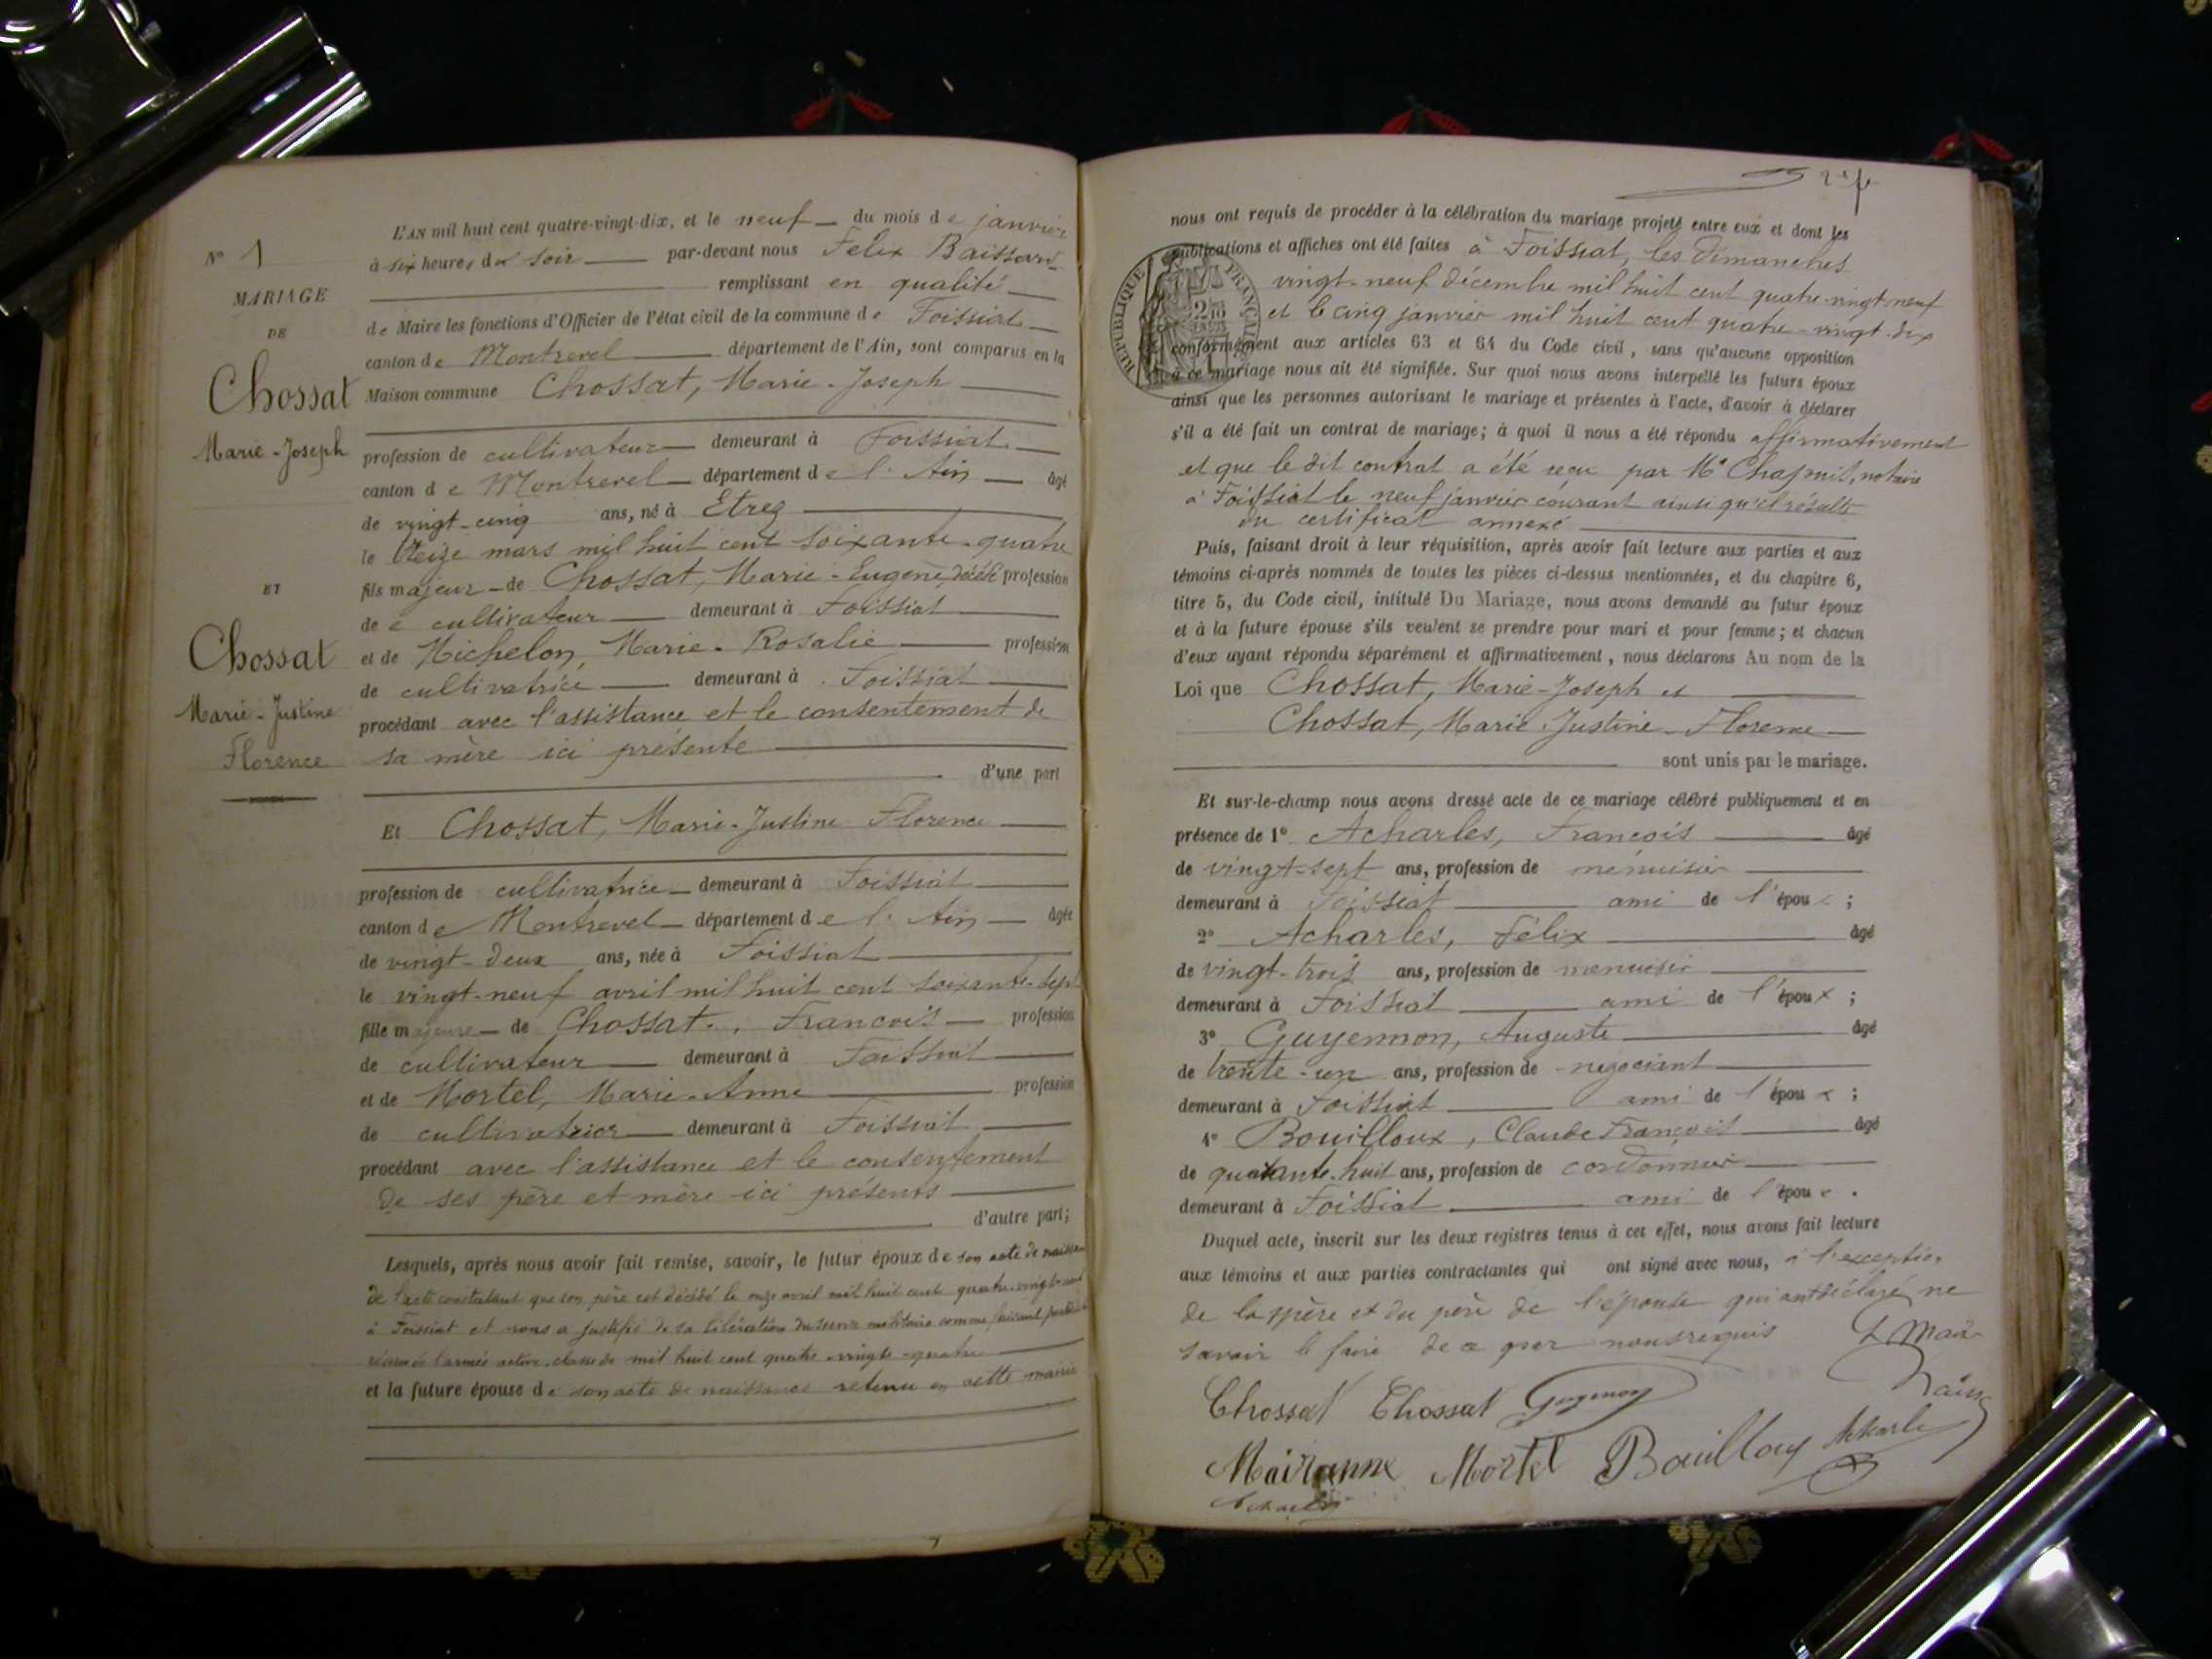 L'AN mil huit cent quatre-vingt-dix, et le neuf du mois de janvier
N° 1
à six heures du soir par-devant nous Félix Baissard
MARIAGE
remplissant en qualité
DE
de Maire les fonctions d'Officier de l'état civil de la commune de Foissiat
canton de Montrevel département de l'Ain, sont comparus en la
Chossat
Maison commune Chossat, Marie-Joseph
Marie-Joseph
profession de cultivateur demeurant à Foissiat
canton de Montrevel département de l'Ain âgé
de vingt-cinq ans, né à Etrez
le treize mars mil huit cent soixante-quatre
ET
fils majeur de Chossat, Marie-Eugène, décédé profession
de cultivateur demeurant à Foissiat
Chossat
et de Michelon, Marie-Rosalie profession
Marie-Justine
de cultivatrice demeurant à Foissiat
procédant avec l'assistance et le consentement de
Florence
sa mère ici présente
d'une part
Et Chossat, Marie-Justine Florence
profession de cultivatrice demeurant à Foissiat
canton de Montrevel département de l'Ain âgée
de vingt-deux ans, née à Foissiat
le vingt-neuf avril mil huit cent soixante-sept
fille majeure de Chossat, François profession
de cultivateur demeurant à Foissiat
et de Mortel, Marie-Anne profession
de cultivatrice demeurant à Foissiat
procédant avec l'assistance et le consentement
de ses père et mère ici présents
d'autre part;
Lesquels, après nous avoir fait remise, savoir, le futur époux de son acte de naissance
de l'acte constatant que son père est décédé le onze avril mil huit cent quatre-vingt
à Foissiat et nous a justifié de sa libération du service militaire comme faisant partie
réserve de l'armée active, classe de mil huit cent quatre-vingt-quatre
et la future épouse de son acte de naissance retenu en cette mairie
nous ont requis de procéder à la célébration du mariage projeté entre eux et dont les
publications et affiches ont été faites à Foissiat, les dimanches
vingt-neuf décembre mil huit cent quatre-vingt neuf
et le cinq janvier mil huit cent quatre-vingt-dix
RÉPUBLIQUE FRANÇAISE
conformément aux articles 63 et 64 du Code civil, sans qu'aucune opposition
à ce mariage nous ait été signifiée. Sur quoi nous avons interpellé les futurs époux
ainsi que les personnes autorisant le mariage et présentes à l'acte, d'avoir à déclarer
s'il a été fait un contrat de mariage; à quoi il nous a été répondu affirmativement
et que le dit contrat a été reçu par Me Chapuis, notaire
à Foissiat le neuf janvier courant ainsi qu'il résulte
du certificat annexé
Puis, faisant droit à leur réquisition, après avoir fait lecture aux parties et aux
témoins ci-après nommés de toutes les pièces ci-dessus mentionnées, et du chapitre 6,
titre 5, du Code civil, intitulé Du Mariage, nous avons demandé au futur époux
et à la future épouse s'ils veulent se prendre pour mari et pour femme; et chacun
d'eux ayant répondu séparément et affirmativement, nous déclarons Au nom de la
Loi que Chossat, Marie-Joseph et
Chossat, Marie Justine-Florence
sont unis par le mariage.
Et sur-le-champ nous avons dressé acte de ce mariage célébré publiquement et en
présence de 1° Acharles, François âgé
de vingt-sept ans, profession de menuisier
demeurant à Foissiat ami de l'époux;
2° Acharles, Félix âgé
de vingt-trois ans, profession de menuisier
demeurant à Foissiat ami de l'époux;
3° Guyennon, Auguste âgé
de trente-un ans, profession de négociant
demeurant à Foissiat ami de l'époux;
4° Bouilloux, Claude François âgé
de quarante-huit ans, profession de cordonnier
demeurant à Foissiat ami de l'époux.
Duquel acte, inscrit sur les deux registres tenus à cet effet, nous avons fait lecture
aux témoins et aux parties contractantes qui ont signé avec nous, à l'exception
de la mère et du père de l'épouse qui ont déclaré ne
savoir le faire de ce par nous requis
Chossat Chossat Guyennon
Mairanne Mortel Bouilloux